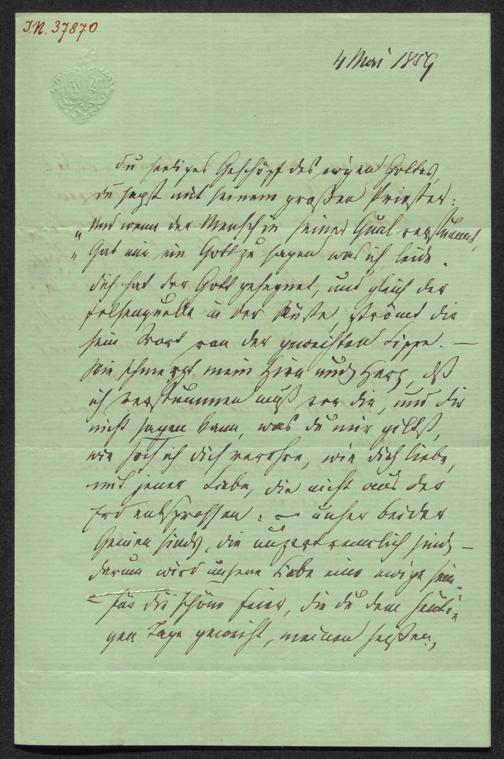 I.N. 37870
4 Mai 1859
Du heiliges Geschöpf des ewigen Gottes,
du sagst mit seinem großen Priester:
"Und wenn der Mensch in seiner Qual verstummt,
"Gab mir ein Gott zu sagen was ich leide.
dich hat der Gott gesegnet, und gleich der
Felsenquelle in der Wüste strömt die
sein Wort von der geweihten Lippe. —
Wie schmerzt mein Hirn und Herz, daß
ich verstummen muß vor dir, und dir
nicht sagen kann, was du mir giltst,
wie hoch ich dich verehre, wie dich liebe,
mit jener Liebe, die nicht aus der
Erd entsprossen: — unser beider
Genien sinds, die unzertrennlich sind —
darum wird unsere Liebe eine ewige sein.
— für die schöne Feier, die du dem heuti-
gen Tage geweiht, meinen heißen,